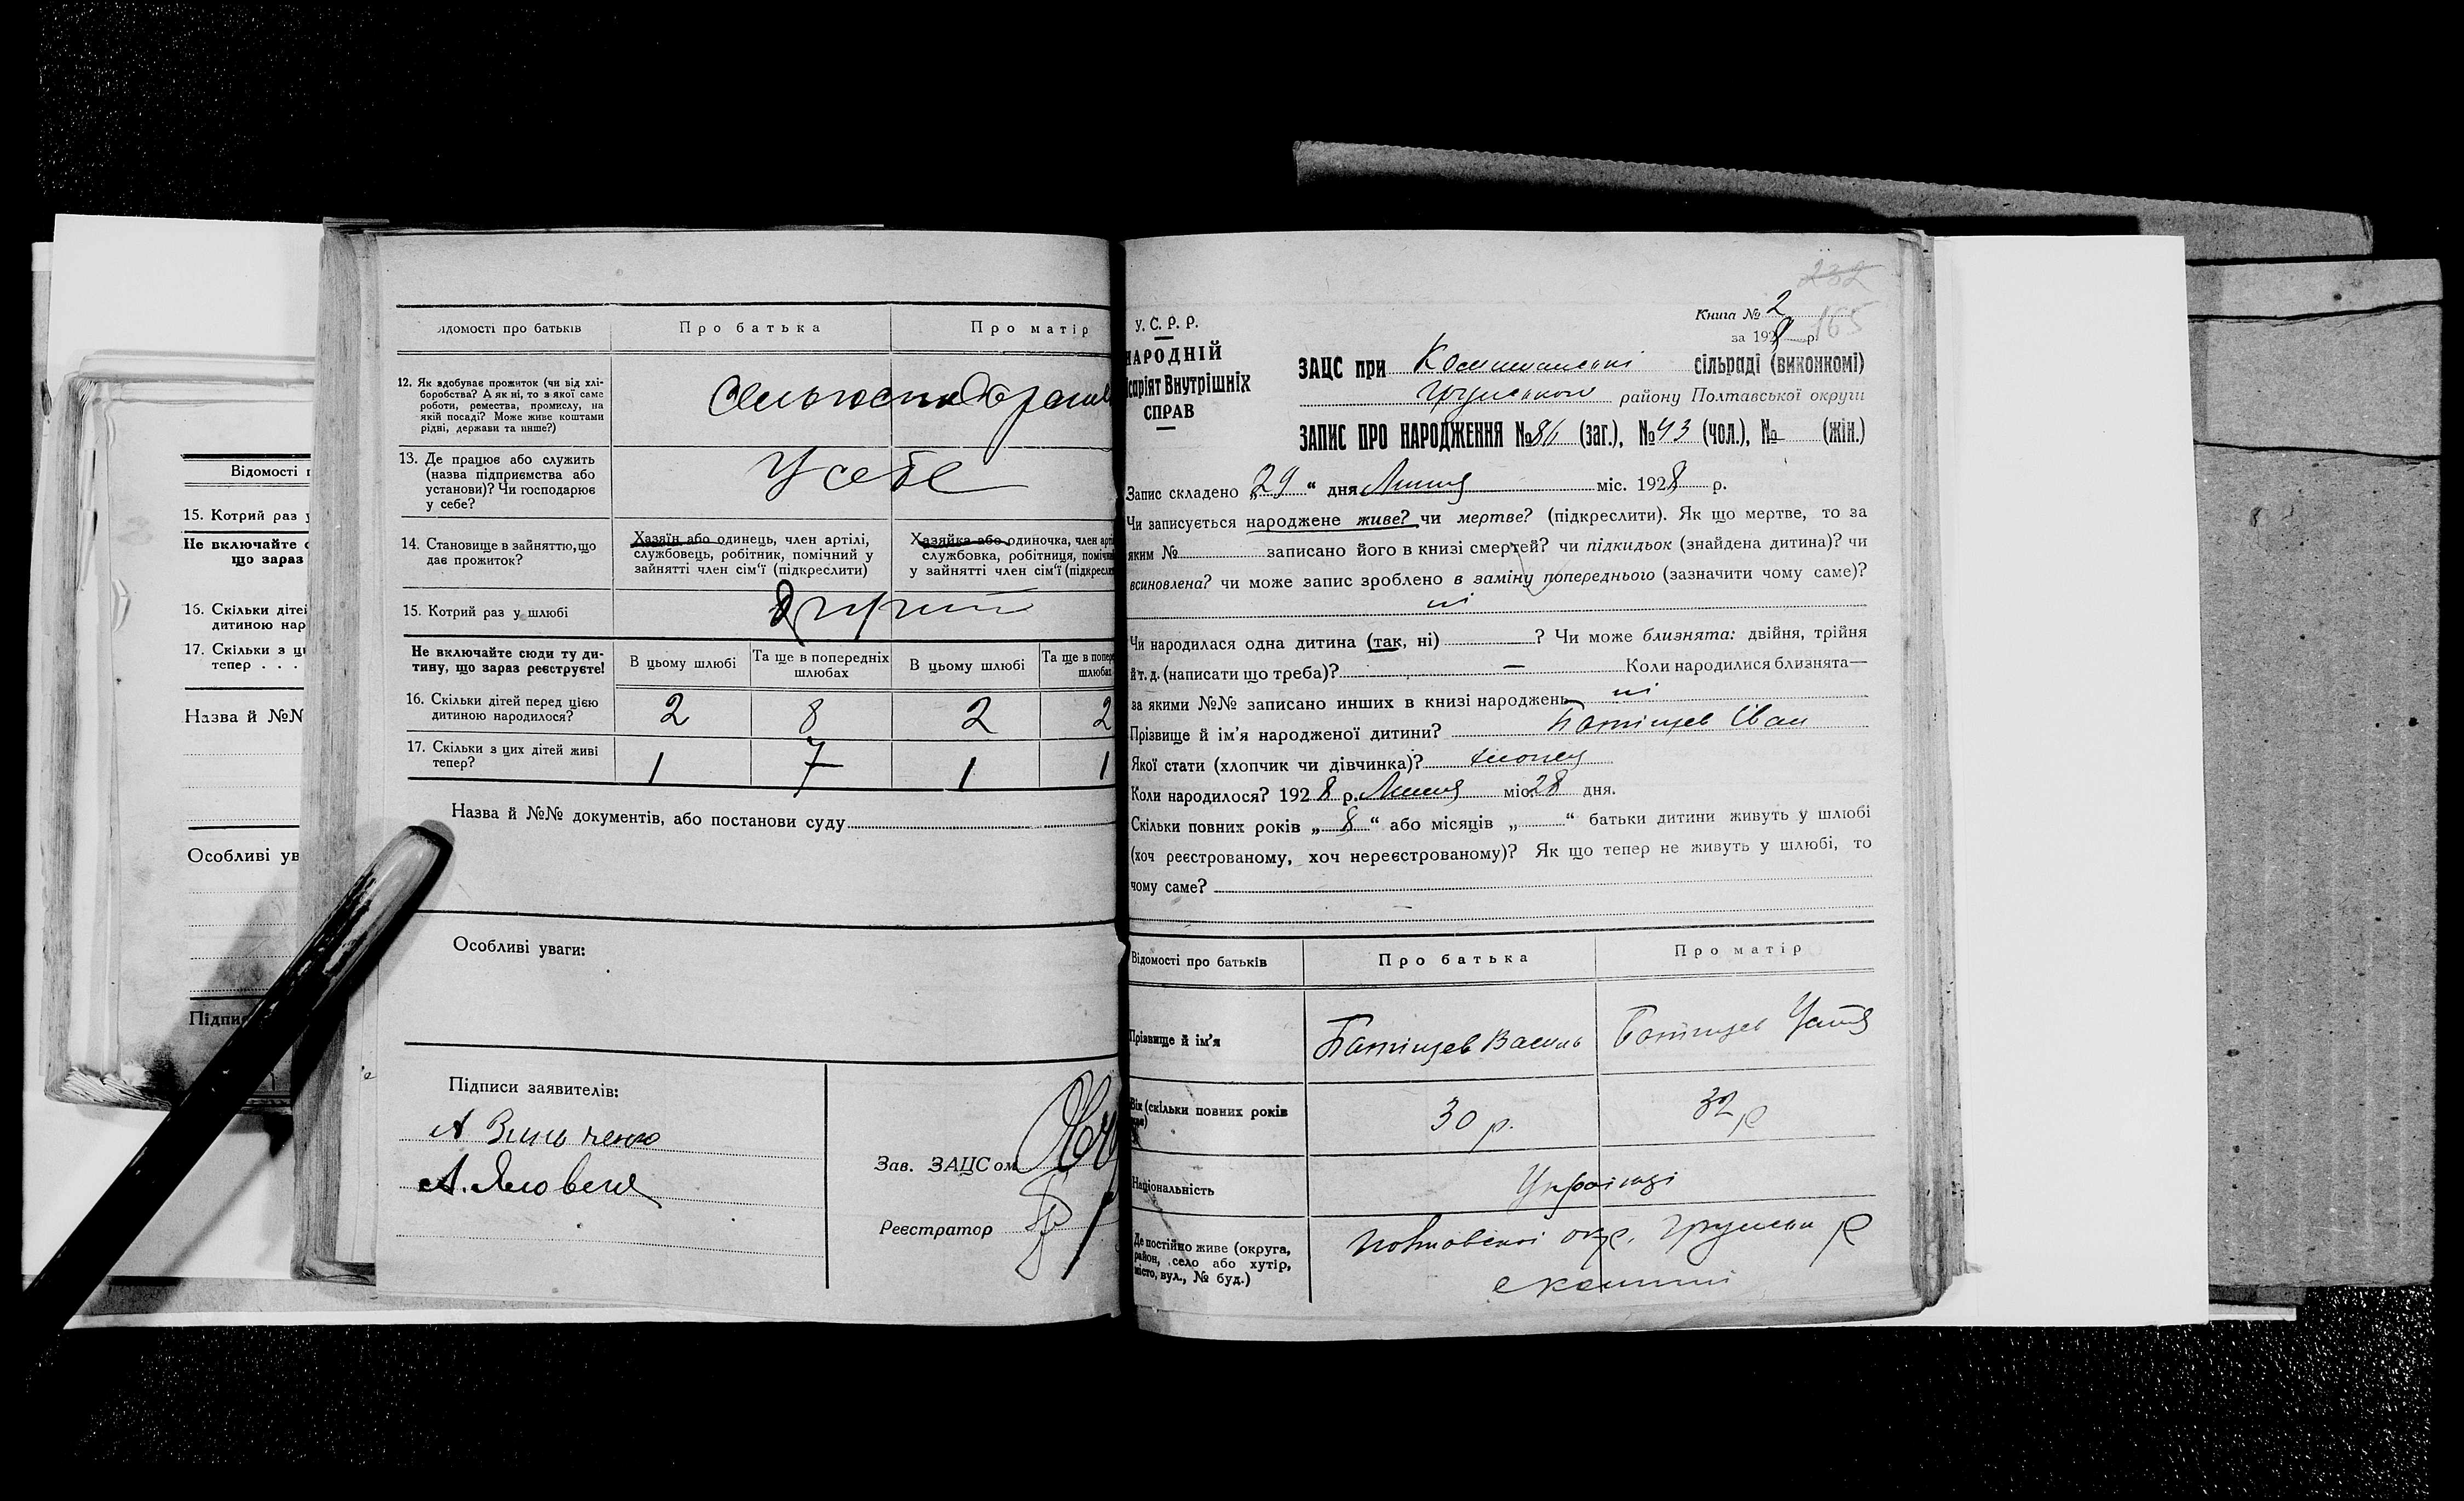 Відомості п
15. Котрий раз у
Не включайте с
що зараз
16. Скільки дітей
дитиною нар
17. Скільки з ци
тепер . . .
Назва й №№
Особливі ув
Підпис
ідомості про батьків
Про батька
Про матір
12. Як здобуває прожиток (чи від хлі-
боробства? А як ні, то з якої саме
роботи, ремества, промислу, на
якій посаді? Може живе коштами
рідні, держави та инше?)
13. Де працює або служить
(назва підприємства або
установи)? Чи господарює
у себе?
У себе
14. Становище в зайняттю, що
дає прожиток?
Хазяїн або одинець, член артілі,
службовець, робітник, помічний у
зайнятті член сім'ї (підкреслити)
Хазяйка або одиночка, член арті
службовка, робітниця, помічн
у зайнятті член сім'ї (підкресли
15. Котрий раз у шлюбі
Другий
Не включайте сюди ту ди-
тину, що зараз реєструєте!
В цьому шлюбі
Та ще в попередніх
шлюбах
В цьому шлюбі
Та ще в попере
шлюбах
16. Скільки дітей перед цією
дитиною народилося?
2 8 2 2
17. Скільки з цих дітей живі
тепер?
1 7 1 1
Назва й №№ документів, або постанови суду
Особливі уваги:
Підписи заявителів:
А. Яловеня
Зав. ЗАЦСом
Реєстратор
232
165
Книга № 2
за 1928 р.
У. С. Р. Р.
НАРОДНІЙ
ісаріят Внутрішніх
СПРАВ
ЗАЦС при сільраді (виконкомі)
району Полтавської округи
ЗАПИС ПРО НАРОДЖЕННЯ № 86 (заг.), № 43 (чол.), № (жін.)
Запис складено „29“ дня Липня міс. 1928 р.
Чи записується народжене живе? чи мертве? (підкреслити). Як що мертве, то за
яким № записано його в книзі смертей? чи підкидьок (знайдена дитина)? чи
всиновлена? чи може запис зроблено в заміну попереднього (зазначити чому саме)?
ні
Чи народилася одна дитина (так, ні) ? Чи може близнята: двійня, трійня
й т. д. (написати що треба)? — Коли народилися близнята—
за якими №№ записано инших в книзі народжень ні
Прізвище й ім'я народженої дитини? Батіщев Іван
Якої стати (хлопчик чи дівчинка)? хлопец
Коли народилося? 1928 р. Липня міс. 28 дня.
Скільки повних років „8“ або місяців „ “ батьки дитини живуть у шлюбі
(хоч реєстрованому, хоч нереєстрованому)? Як що тепер не живуть у шлюбі, то
чому саме?
Відомості про батьків
Про батька
Про матір
Прізвище й ім'я
Батіщев Василь
Батіщев
Вік (скільки повних років
має)
30 р.
32 р
Національність
Українці
Де постійно живе (округа,
район, село або хутір,
місто, вул., № буд.)
Полтавської окр. Грунськ р